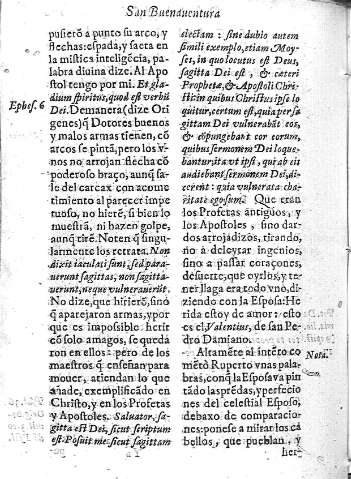 San Buenauentura
pusierõ a punto su arco, y
flechas: espada, y saeta en
la mistica inteligẽcia, pa-
labra diuina dize. Al Apo
stol tengo por mi. Et gla-
dium spiritus, quod est verbũ
Dei. Demanera (dize Ori
genes) q̃ Dotores buenos
y malos armas tienen, cõ
arcos se pintã, pero los v-
nos no arrojan flecha cõ
poderoso braço, aunq̃ sa-
le del carcax con acome
timiento al parecer impe
tuoso, no hierẽ, si bien lo
muestrã, ni hazen golpe,
aunq̃ tirẽ. Noten q̃ singu-
larmente los retrata. Non
dixit iaculati sunt: sed para-
uerunt sagittas, non sagitta-
uerunt, neque vulnerauerũt.
No dize, que hirierõ, sino
q̃ aparejaron armas, y por
que es impossible herir
cõ solo amagos, se queda
ron en ellos: pero de los
maestros q̃ enseñan para
mouer, atiendan lo que
añade, exemplificado en
Christo, y en los Profetas
y Apostoles. Saluator, sa-
gitta est Dei, sicut scriptum
est. Posuit me sicut sagittam
Ephes. 6
electam: sine dubio autem
simili exemplo, etiam Moy-
ses, in quo locutus est Deus,
sagitta Dei est, & cæteri
Prophetæ, & Apostoli Chri-
sti: in quibus Christus ipse lo
quitur, certum est, quia per sa
gittam Dei vulnerabãt eos,
& cõpungebant cor eorum,
quibus sermonem Dei loque-
bantur: ita vt ipsi, qui ab eis
audiebant sermonem Dei, di-
cerent: quia vulnerata cha-
ritate ego sum. Que eran
los Profetas antiguos, y
los Apostoles, sino dar-
dos arrojadizos, tirando,
no a deleytar ingenios,
sino a passar coraçones,
de suerte, que oyrlos, y te-
ner llaga era todo vno, di-
ziendo con la Esposa: He
rida estoy de amor: esto
es el, Valentius, de san Pe-
dro Damiano.
Altamẽte al intẽto co
mẽtò Ruperto vnas pala-
bras, con q̃ la Esposa va pin
tãdo las prẽdas, y perfecio
nes del celestial Esposo,
debaxo de comparacio-
nes: ponese a mirar los ca
bellos, que pueblan, y
her-
Nota.